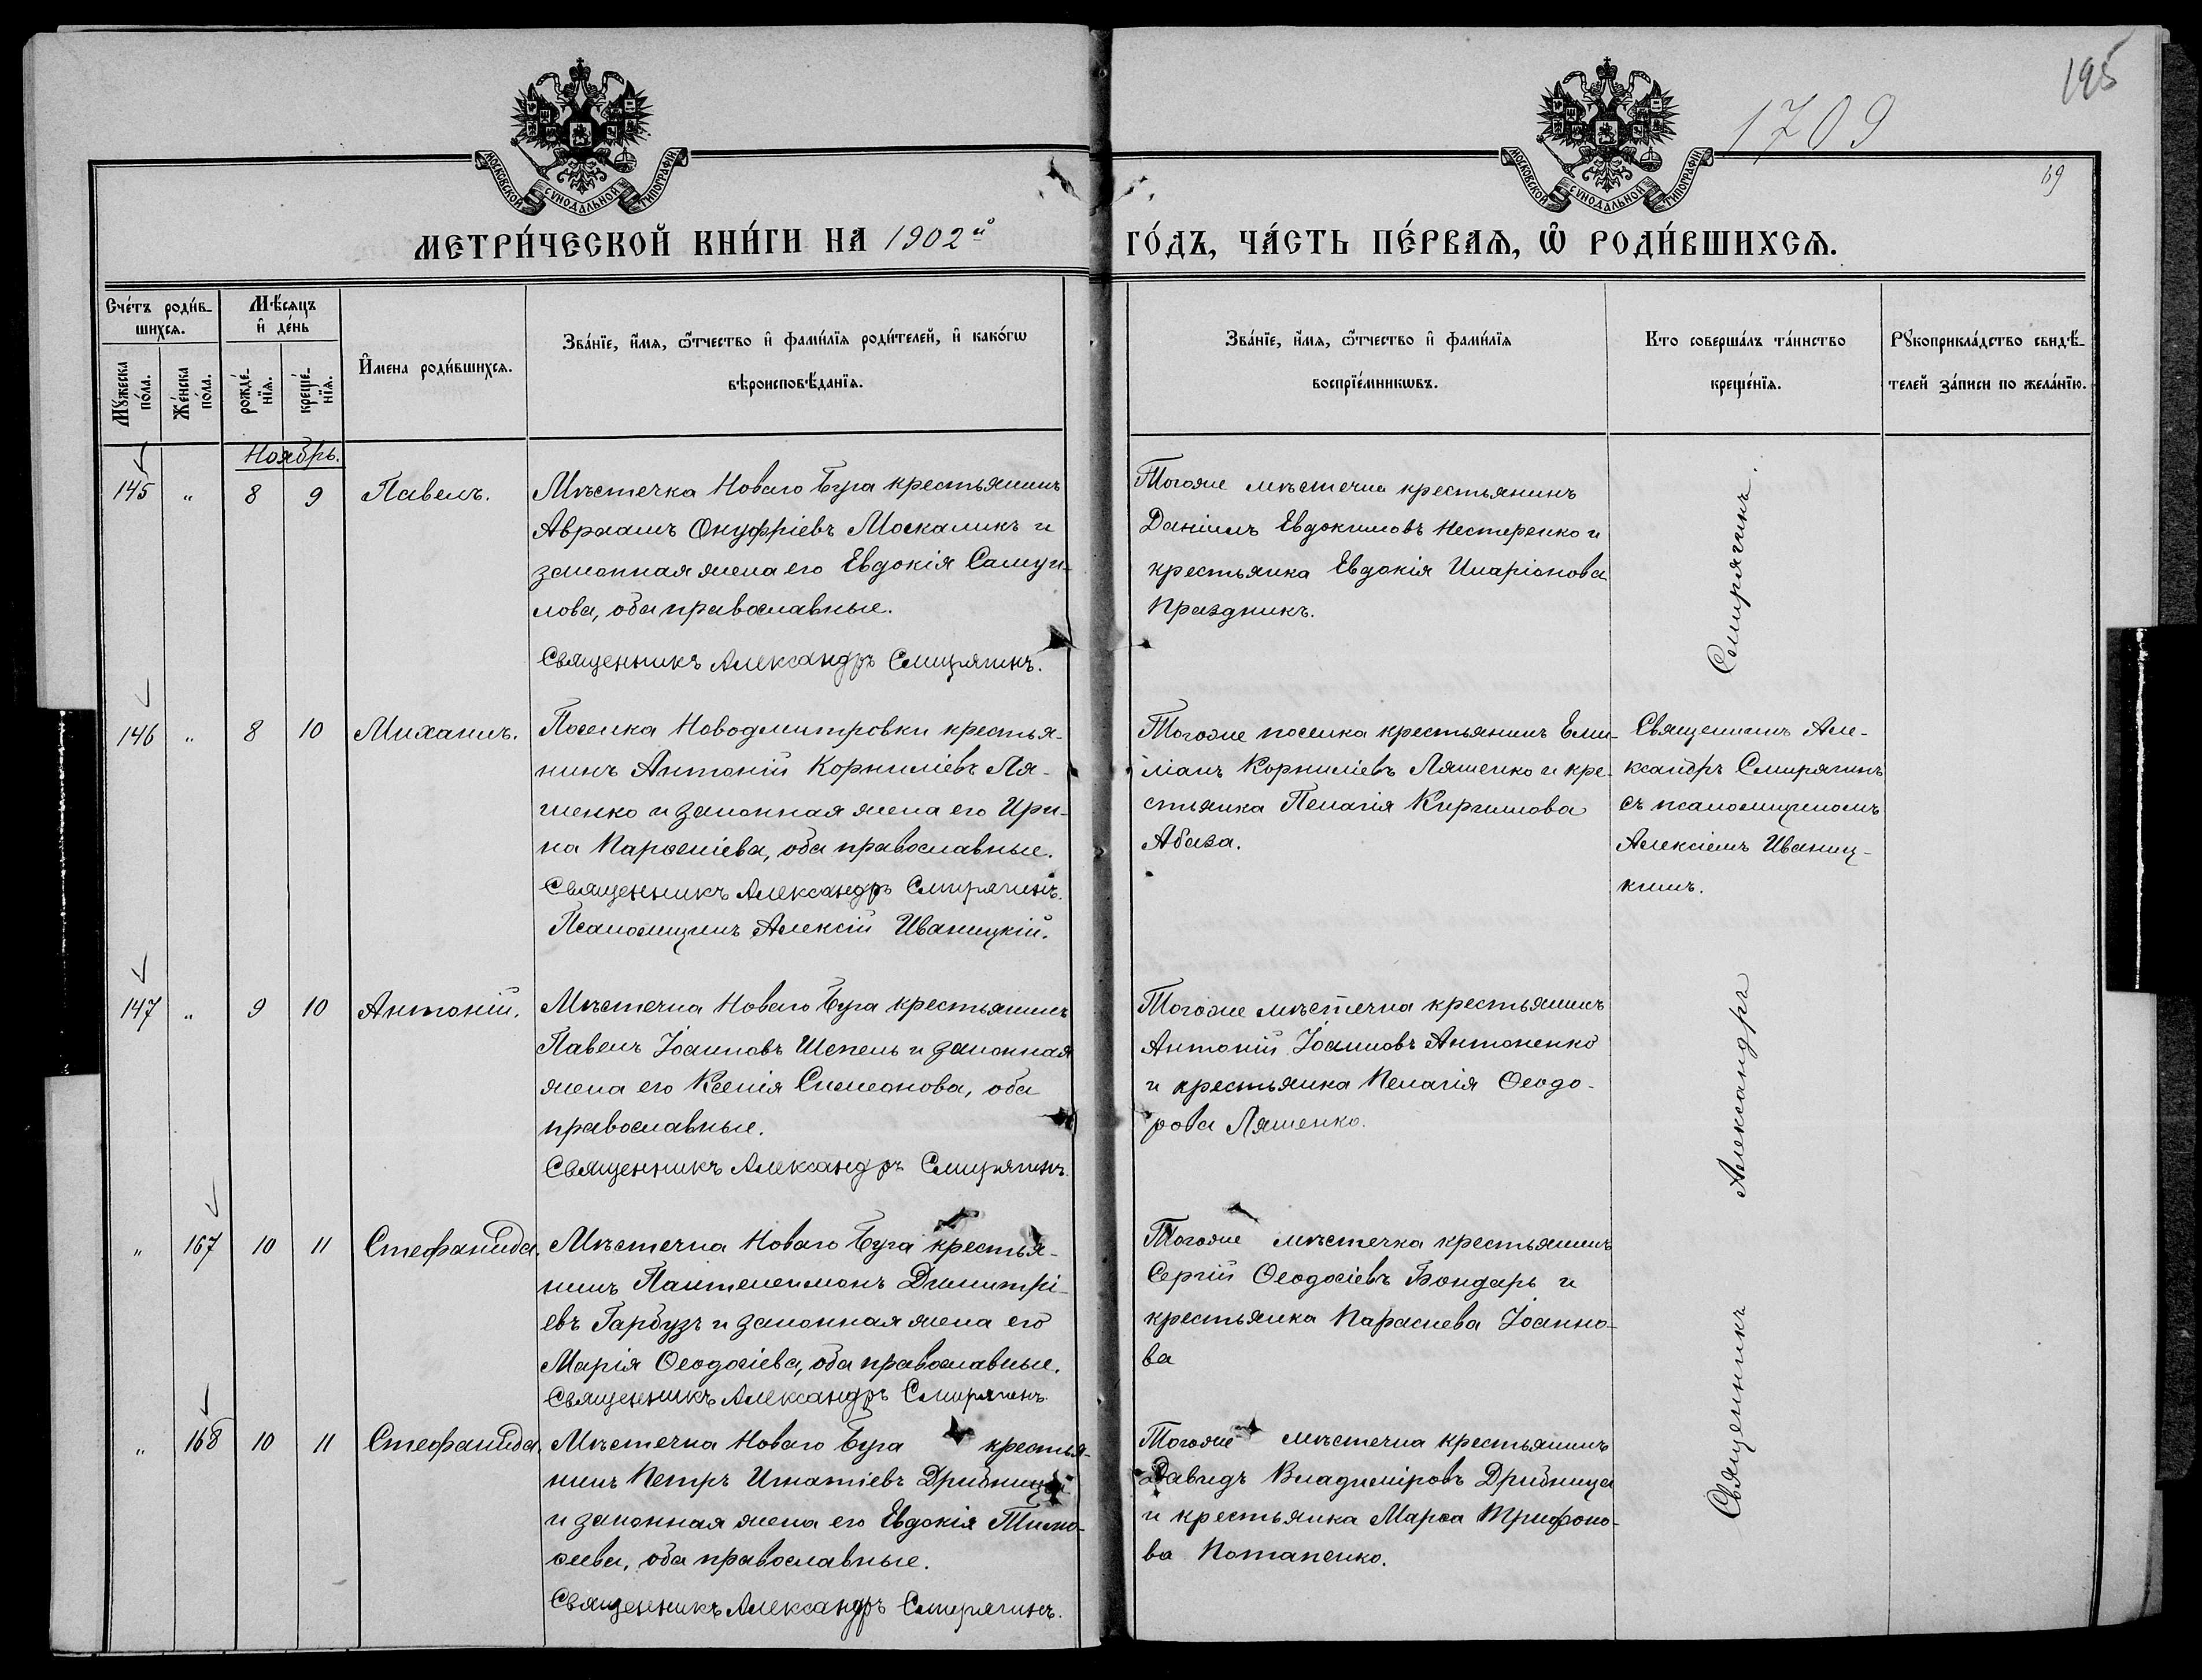 195
1709
69
МОСКОВСКОЙ СѴНОДАЛЬНОЙ ТИПОГРАФІИ
МОСКОВСКОЙ СѴНОДАЛЬНОЙ ТИПОГРАФІИ
МЕТРИ́ЧЕСКОЙ КНИ́ГИ НА 1902й ГО́ДЪ, ЧА́СТЬ ПЕ́РВАѦ, Ѽ РОДИ́ВШИХСѦ.
Сче́тъ роди́в-
шихся.
Мꙋжеска по́ла.
Же́нска по́ла.
Мѣ́сяцъ
и҆ де́нь
рожде́-
нїя.
креще́-
нїя.
И҆мена роди́вшихся.
Зва́нїе, и҆́мя, ѻ҆́тчество и҆ фами́лїя роди́телей, и҆ како́гѡ
вѣроисповѣ́данїя.
Зва́нїе, и҆́мя, ѻ҆́тчество и҆ фами́лїя
воспрїе́мникѡвъ.
Кто соверша́лъ та́инство
креще́нїя.
Рꙋкоприкла́дство свидѣ́-
телей за́писи по жела́нїю.
Ноябрь.
145 „ 8 9 Павелъ.
Мѣстечка Новаго Буга крестьянинъ
Авраамъ Онуфріевъ Москаликъ и
законная жена его Евдокія Самуи-
лова, оба православные.
Священникъ Александръ Смирягинъ.
Тогоже мѣстечка крестьянинъ
Даніилъ Евдокимовъ Нестеренко и
крестьянка Евдокія Иларіонова
Праздникъ.
146 „ 8 10 Михаилъ.
Поселка Новодмитровки крестья-
нинъ Антоній Корниліевъ Ля-
шенко и законная жена его Ири-
на Парѳеніева, оба православные.
Священникъ Александръ Смирягинъ.
Псаломщикъ Алексій Иваницкій.
Тогоже поселка крестьянинъ Еми-
ліанъ Корниліевъ Ляшенко и кре-
стьянка Пелагія Кириллова
Абаза.
Священникъ Але-
ксандръ Смирягинъ
съ псаломщикомъ
Алексіемъ Иваниц-
кимъ.
147 „ 9 10 Антоній.
Мѣстечка Новаго Буга крестьянинъ
Павелъ Іоанновъ Шепель и законная
жена его Ксенія Симеонова, оба
православные.
Священникъ Александръ Смирягинъ.
Тогоже мѣстечка крестьянинъ
Антоній Іоанновъ Антоненко
и крестьянка Пелагія Ѳеодо-
рова Ляшенко.
„ 167 10 11 Стефанида.
Мѣстечка Новаго Буга крестья-
нинъ Пантелеимонъ Димитрі-
евъ Гарбузъ и законная жена его
Марія Ѳеодосіева, оба православные.
Священникъ Александръ Смирягинъ
Тогоже мѣстечка крестьянинъ
Сергій Ѳеодосіевъ Бондарь и
крестьянка Параскева Іоанно-
ва
„ 168 10 11 Стефанида.
Мѣстечка Новаго Буга крестья-
нинъ Петръ Игнатіевъ Дрибница
и законная жена его Евдокія Тимо-
ѳеева, оба православные.
Священникъ Александръ Смирягинъ.
Тогоже мѣстечка крестьянинъ
Давидъ Владиміровъ Дрибница
и крестьянка Марѳа Трифоно-
ва Потапенко.
Священникъ Александръ Смирягинъ.